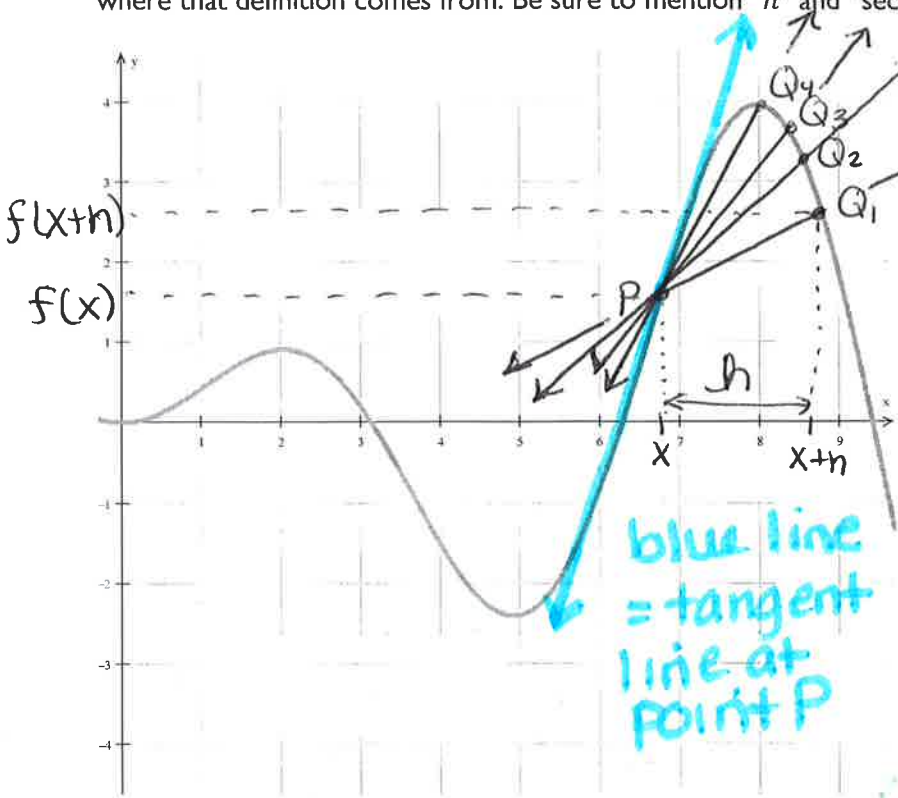 where that definition comes from. Be sure to mention "h" and "sec
y
4
3
2
1
-1
-2
-3
-4
1
2
3
4
5
6
7
8
9
x
f(x+h)
f(x)
P
Q4
Q3
Q2
Q1
h
x
x+h
blue line
= tangent
line at
point P